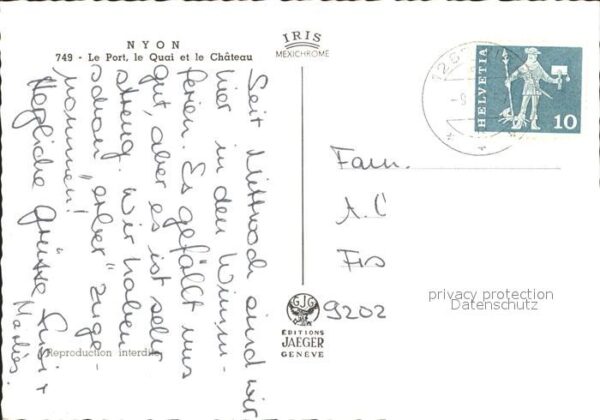 NYON
749 - Le Port, le Quai et le Château
IRIS
MEXICHROME
Seit Mittwoch sind wir
hier in den Wümm-
ferien. Es gefällt uns
gut, aber es ist sehr
streng. Wir haben
schon "erber" zuge-
nommen!
Herzliche Grüsse Susi +
Marliès.
Reproduction interdite
GJG
EDITIONS
JAEGER
GENÈVE
HELVETIA
10
Fam.
A. C
Fis
9202
privacy protection
Datenschutz